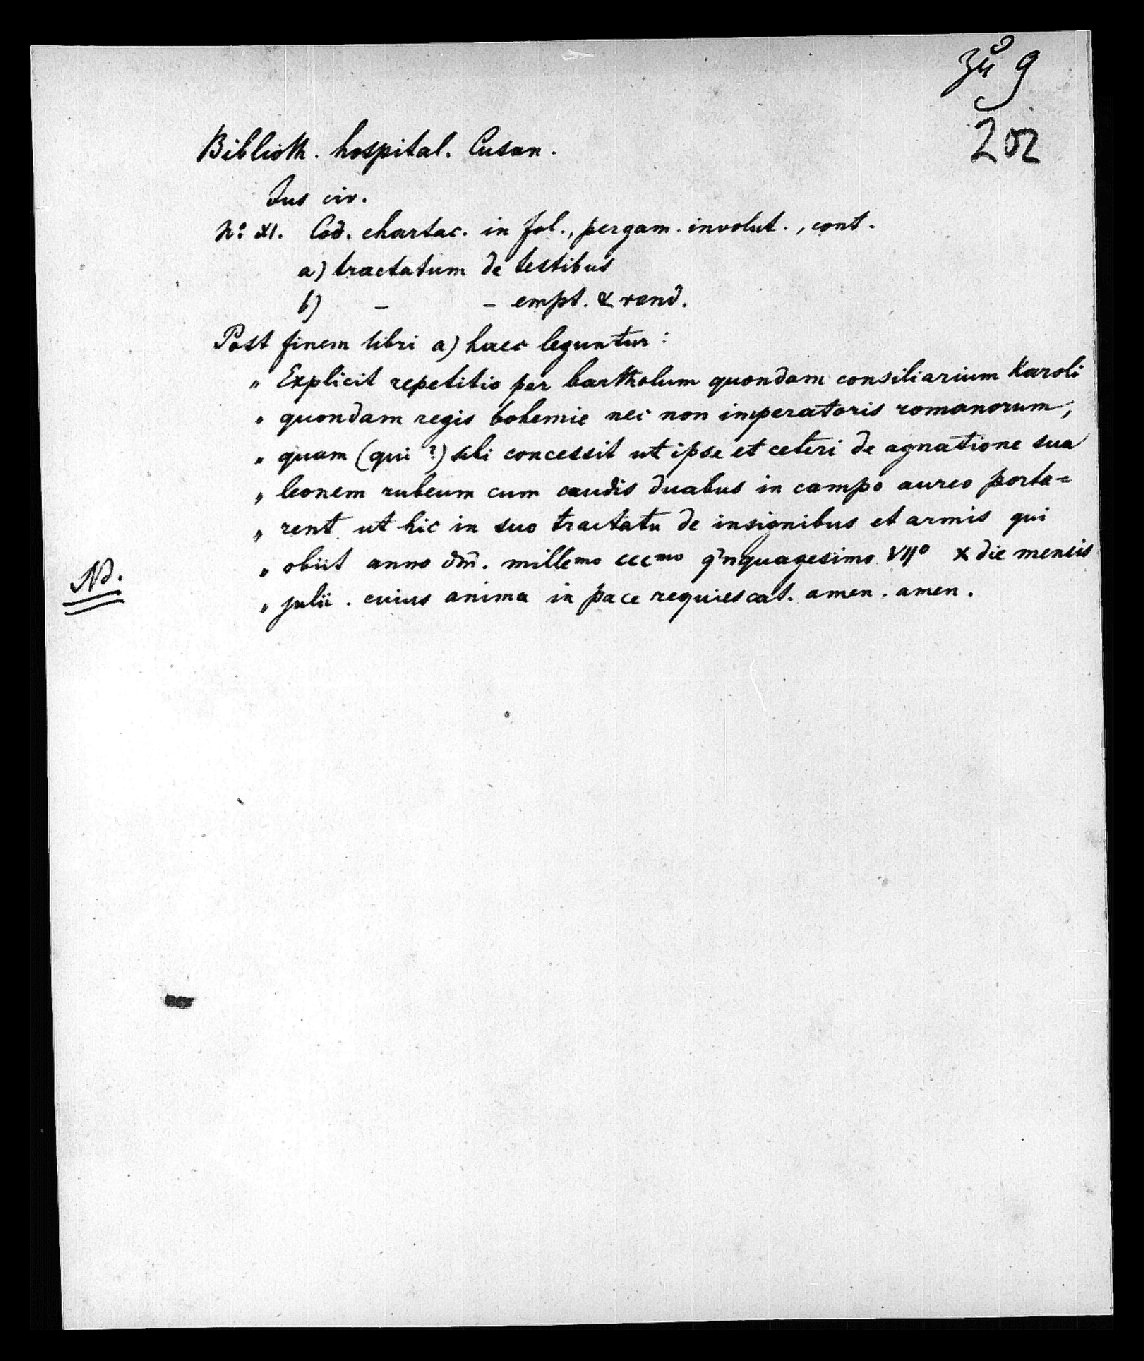 zu 9
202
Biblioth. hospital. Cusan.
Jus civ.
No XI. Cod. chartac. in fol., pergam. involut., cont.
a) tractatum de testibus
b) – – empt. & vend.
Post finem libri a) haec leguntur:
„ Explicit repetitio per bartholum quondam consiliarium Karoli
„ quondam regis bohemie nec non imperatoris romanorum,
„ quam (qui?) sibi concessit ut ipse et ceteri de agnatione sua
„ leonem rubeum cum caudis duabus in campo aureo porta=
„ rent ut hic in suo tractatu de insignibus et armis qui
„ obiit anno dm̄. millemo cccmo q'nquagesimo VIIo X die mensis
„ julii. cuius anima in pace requiescat. amen. amen.
NB.